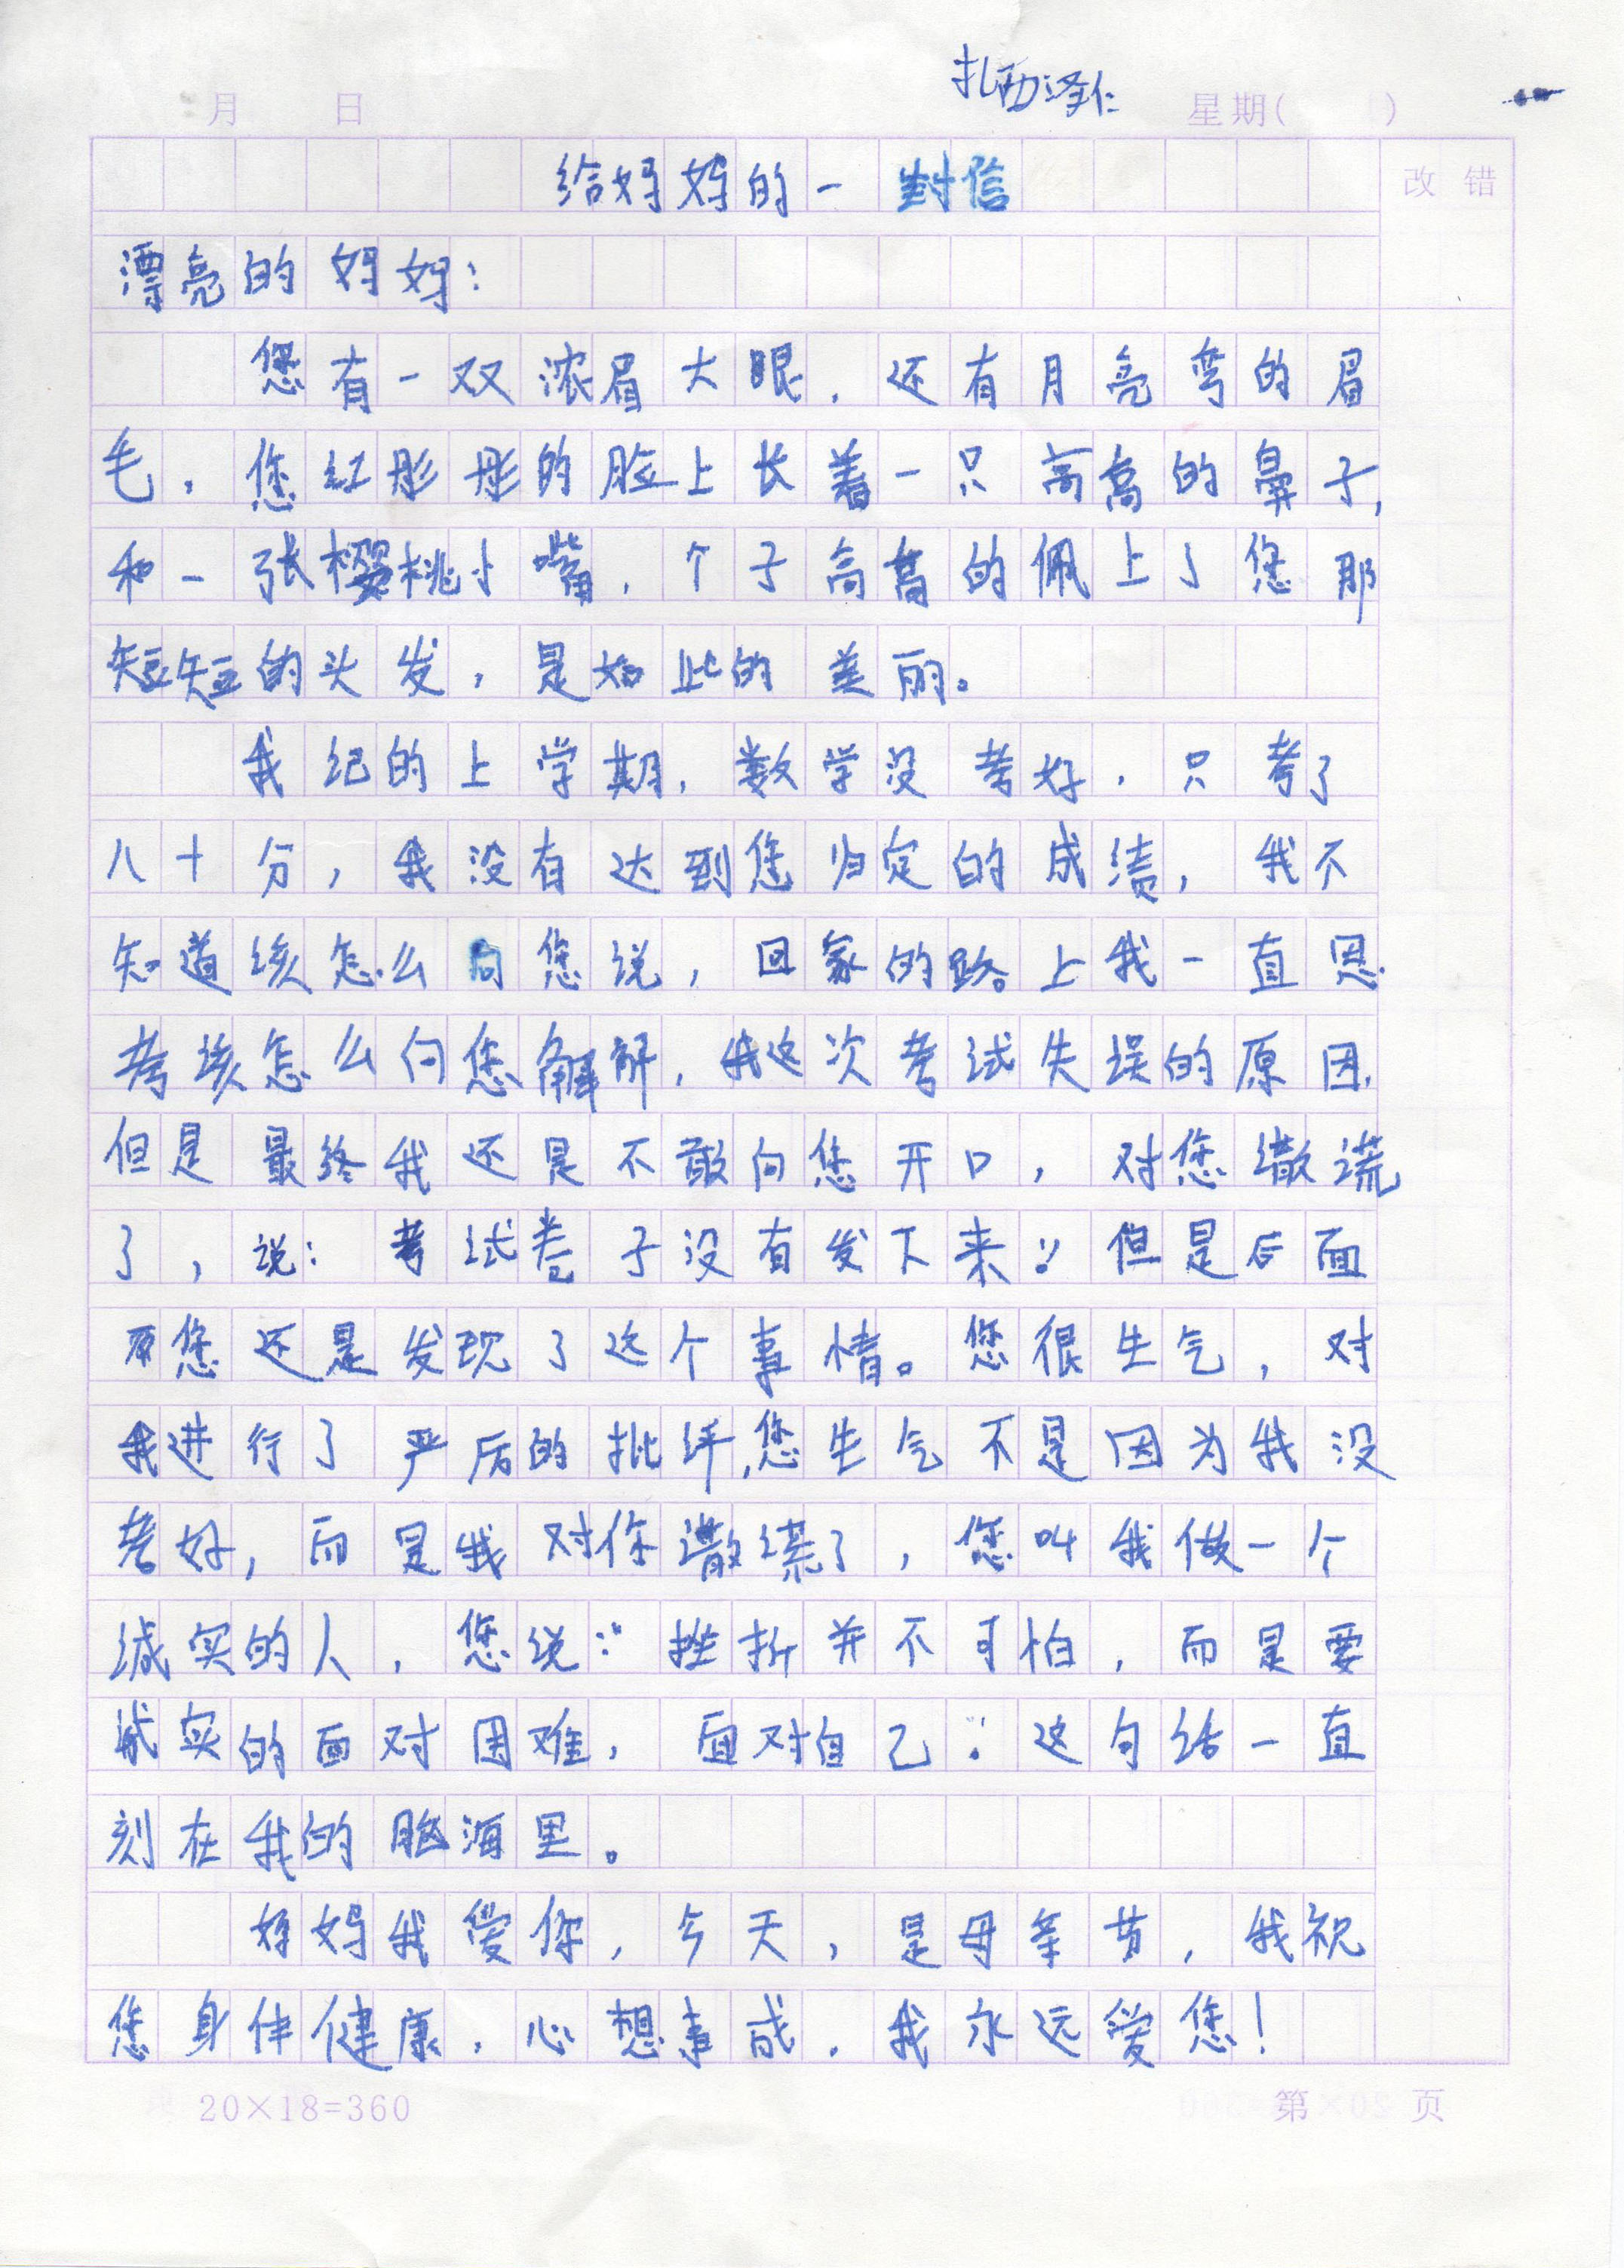 扎西泽仁
月 日 星期( )
给妈妈的一封信
改 错
漂亮的妈妈:
您有一双浓眉大眼，还有月亮弯的眉
毛，您红彤彤的脸上长着一只高高的鼻子,
和一张樱桃小嘴，个子高高的佩上了您那
短短的头发，是如此的美丽。
我纪的上学期，数学没考好，只考了
八十分，我没有达到您归定的成渍，我不
知道该怎么向您说，回家的路上我一直思
考该怎么向您解解，我这次考试失误的原因,
但是最终我还是不敢向您开口，对您撒谎
了，说：考试卷子没有发下来！但是后面
您还是发现了这个事情。您很生气，对
我进行了严厉的批评,您生气不是因为我没
考好，而是我对你撒谎了，您叫我做一个
诚实的人，您说：“挫折并不可怕，而是要
诚实的面对困难，面对自己。”这句话一直
刻在我的脑海里。
妈妈我爱你，今天，是母亲节，我祝
您身体健康，心想事成，我永远爱您！
20×18=360 第 页